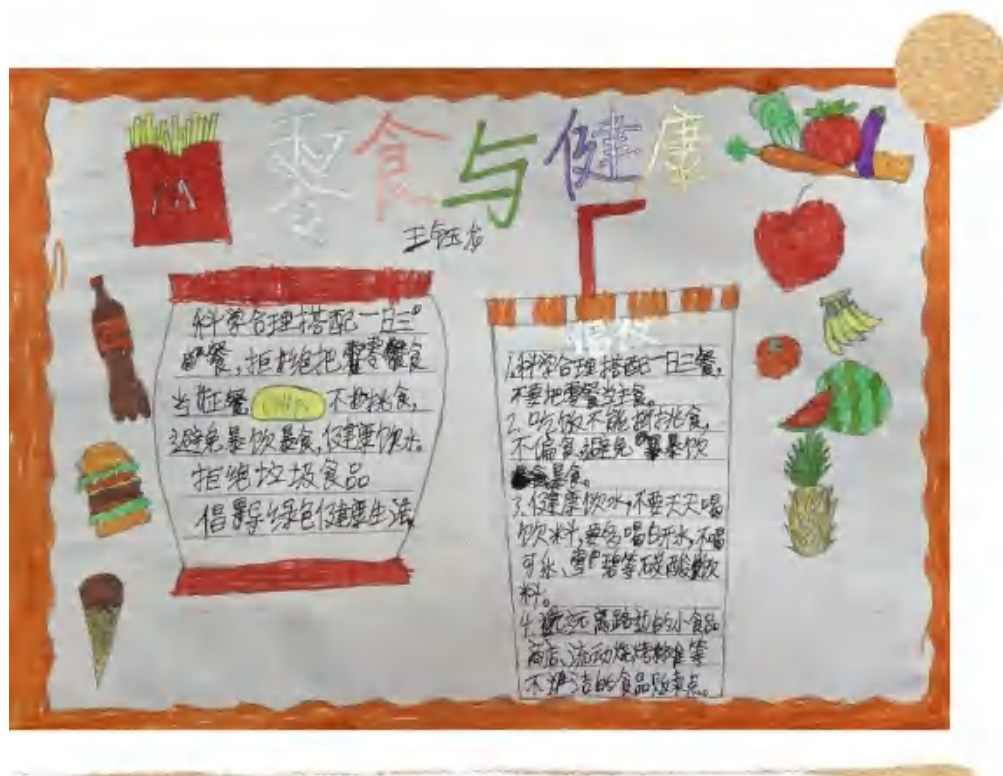 零食与健康
王钰龙
科学合理搭配一日三
餐,拒绝把零食
当正餐 不挑食,
避免暴饮暴食,健康饮水。
拒绝垃圾食品
倡导绿色健康生活
倡议
1.科学合理搭配一日三餐,
不要把零餐当主食。
2.吃饭不能挑食,
不偏食,避免暴饮
暴食。
3.健康饮水,不要天天喝
饮料,要多喝白开水,不喝
可乐、雪碧等碳酸饮
料。
4.远离路边的小食品
商店、流动烧烤摊等
不洁的食品贩卖点。